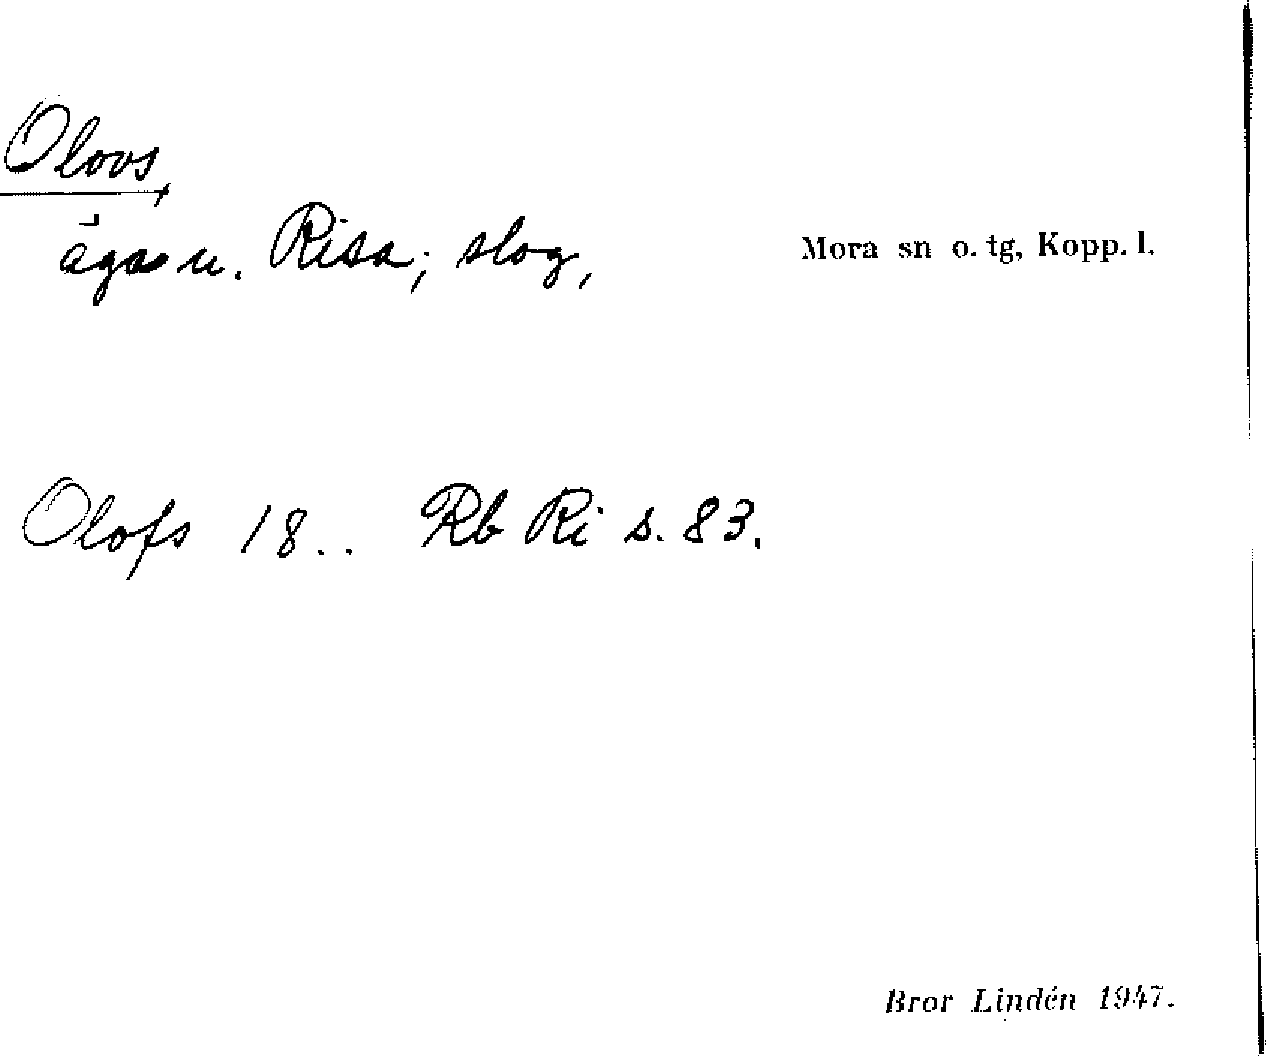 Olovs,
ägo u. Risa; slog,
Mora sn o. tg, Kopp. l.
Olofs 18.. Rb Ri s. 83.
Bror Lindén 1947.